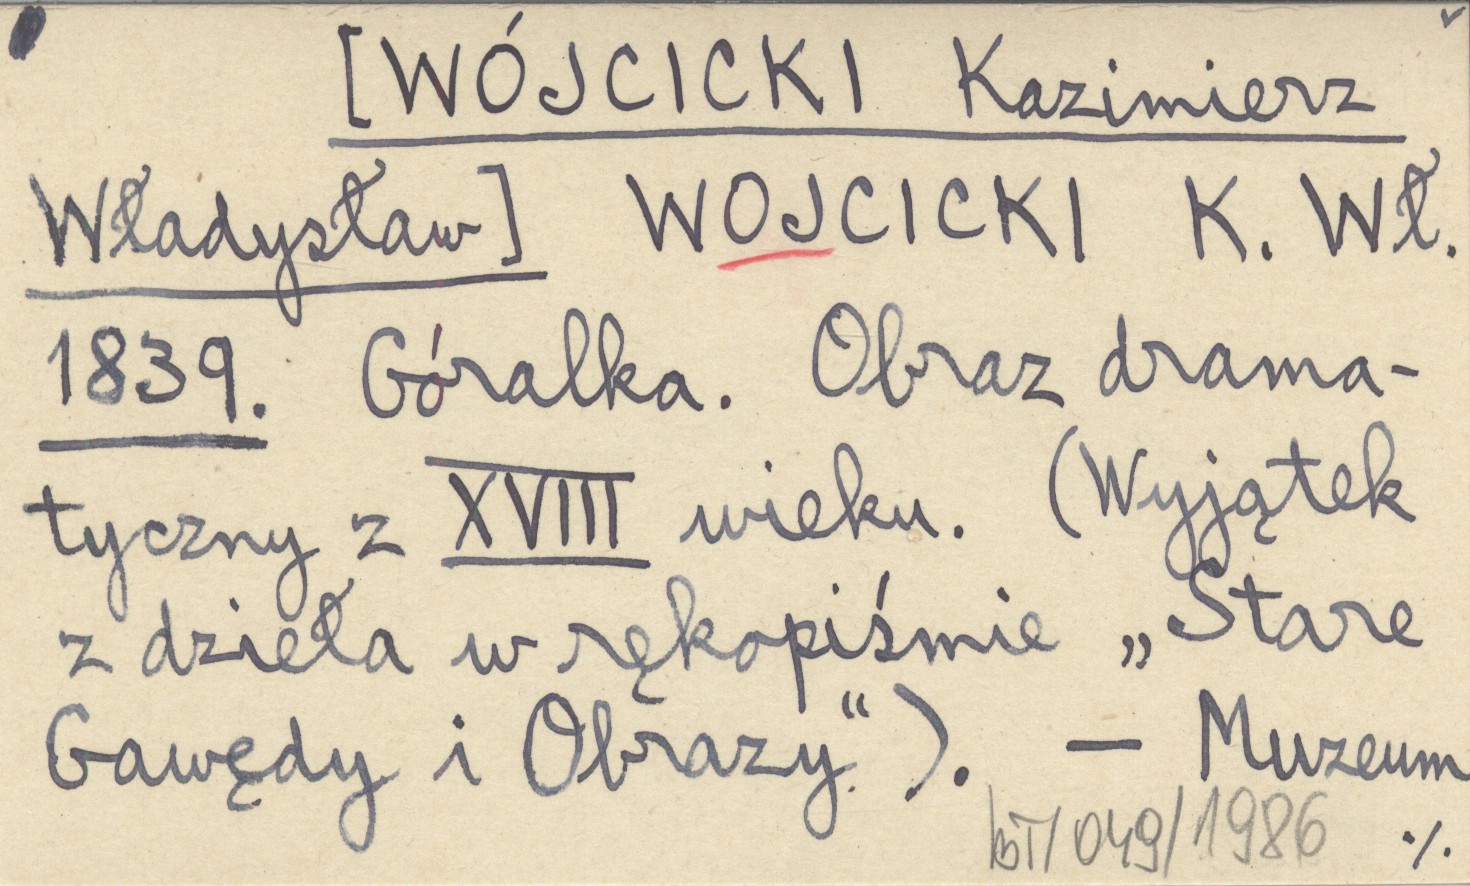 [WÓJCICKI Kazimierz
Władysław] WOJCICKI K. Wł.
1839. Góralka. Obraz drama-
tyczny z XVIII wieku. (Wyjątek
z dzieła w rękopiśmie „Stare
Gawędy i Obrazy“). — Muzeum
BT/049/1986 ./.